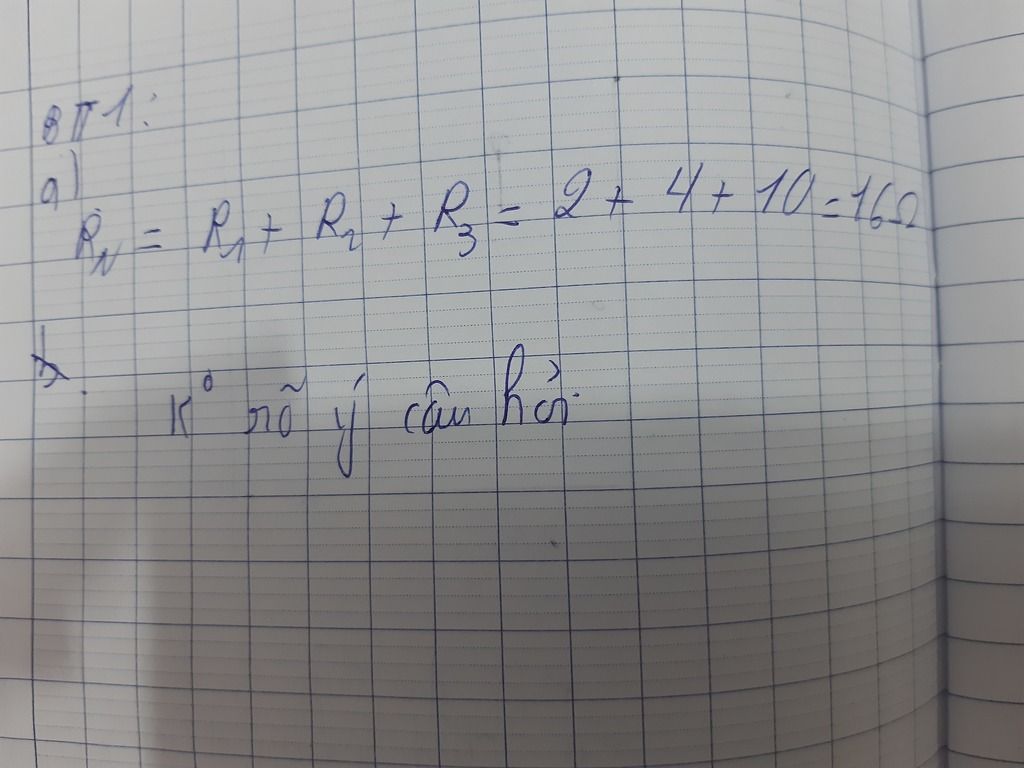 BT1:
a)
R_N = R_1 + R_2 + R_3 = 2 + 4 + 10 = 16Ω
b.
K° rõ ý câu hỏi.